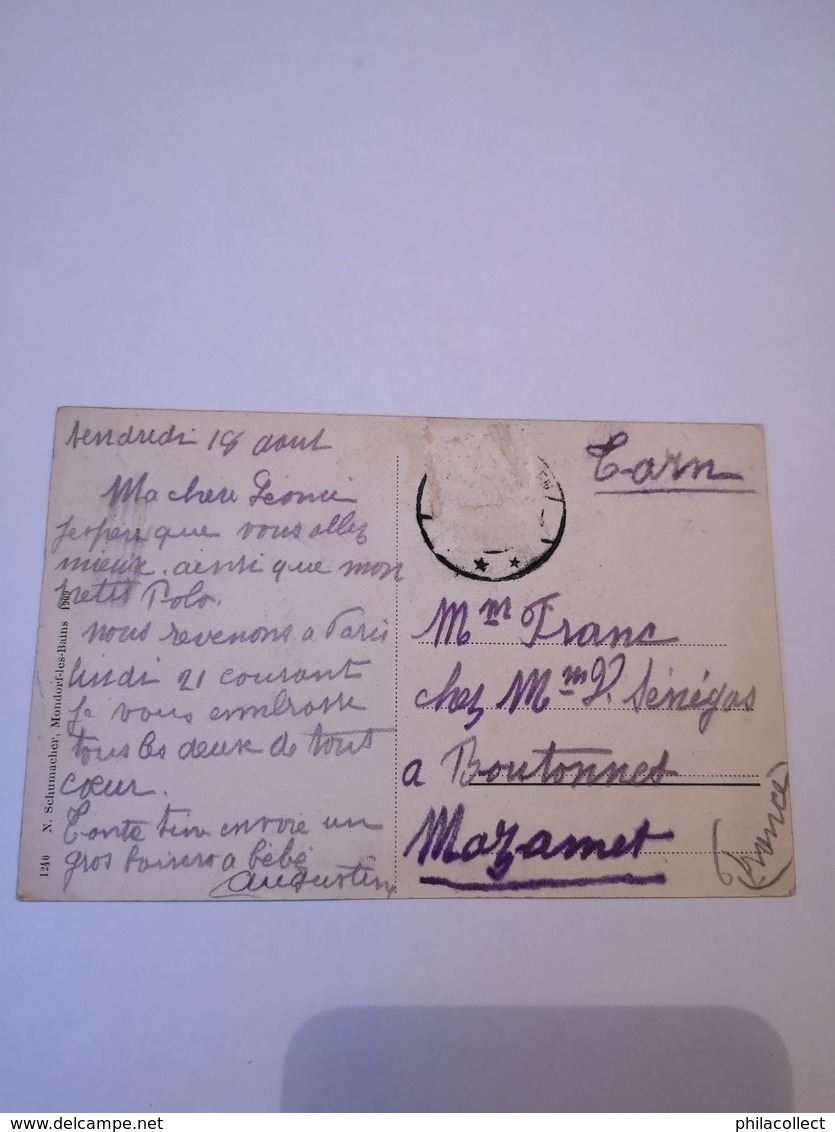 Vendredi 18 aout
Ma chere Leonie
Jespere que vous allez
mieux. ainsi que mon
petit Polo.
nous revenons a Paris
lundi 21 courant
Je vous embrasse
tous les deux de tout
cœur.
envoie un
gros baisers a bébé
Augustin
1240 N. Schumacher, Mondorf-les-Bains 1909
Tarn
Mm Franc
chez Mm V. Sénégas
a Boutonnet
Mazamet
(France)
delcampe.net
philacollect